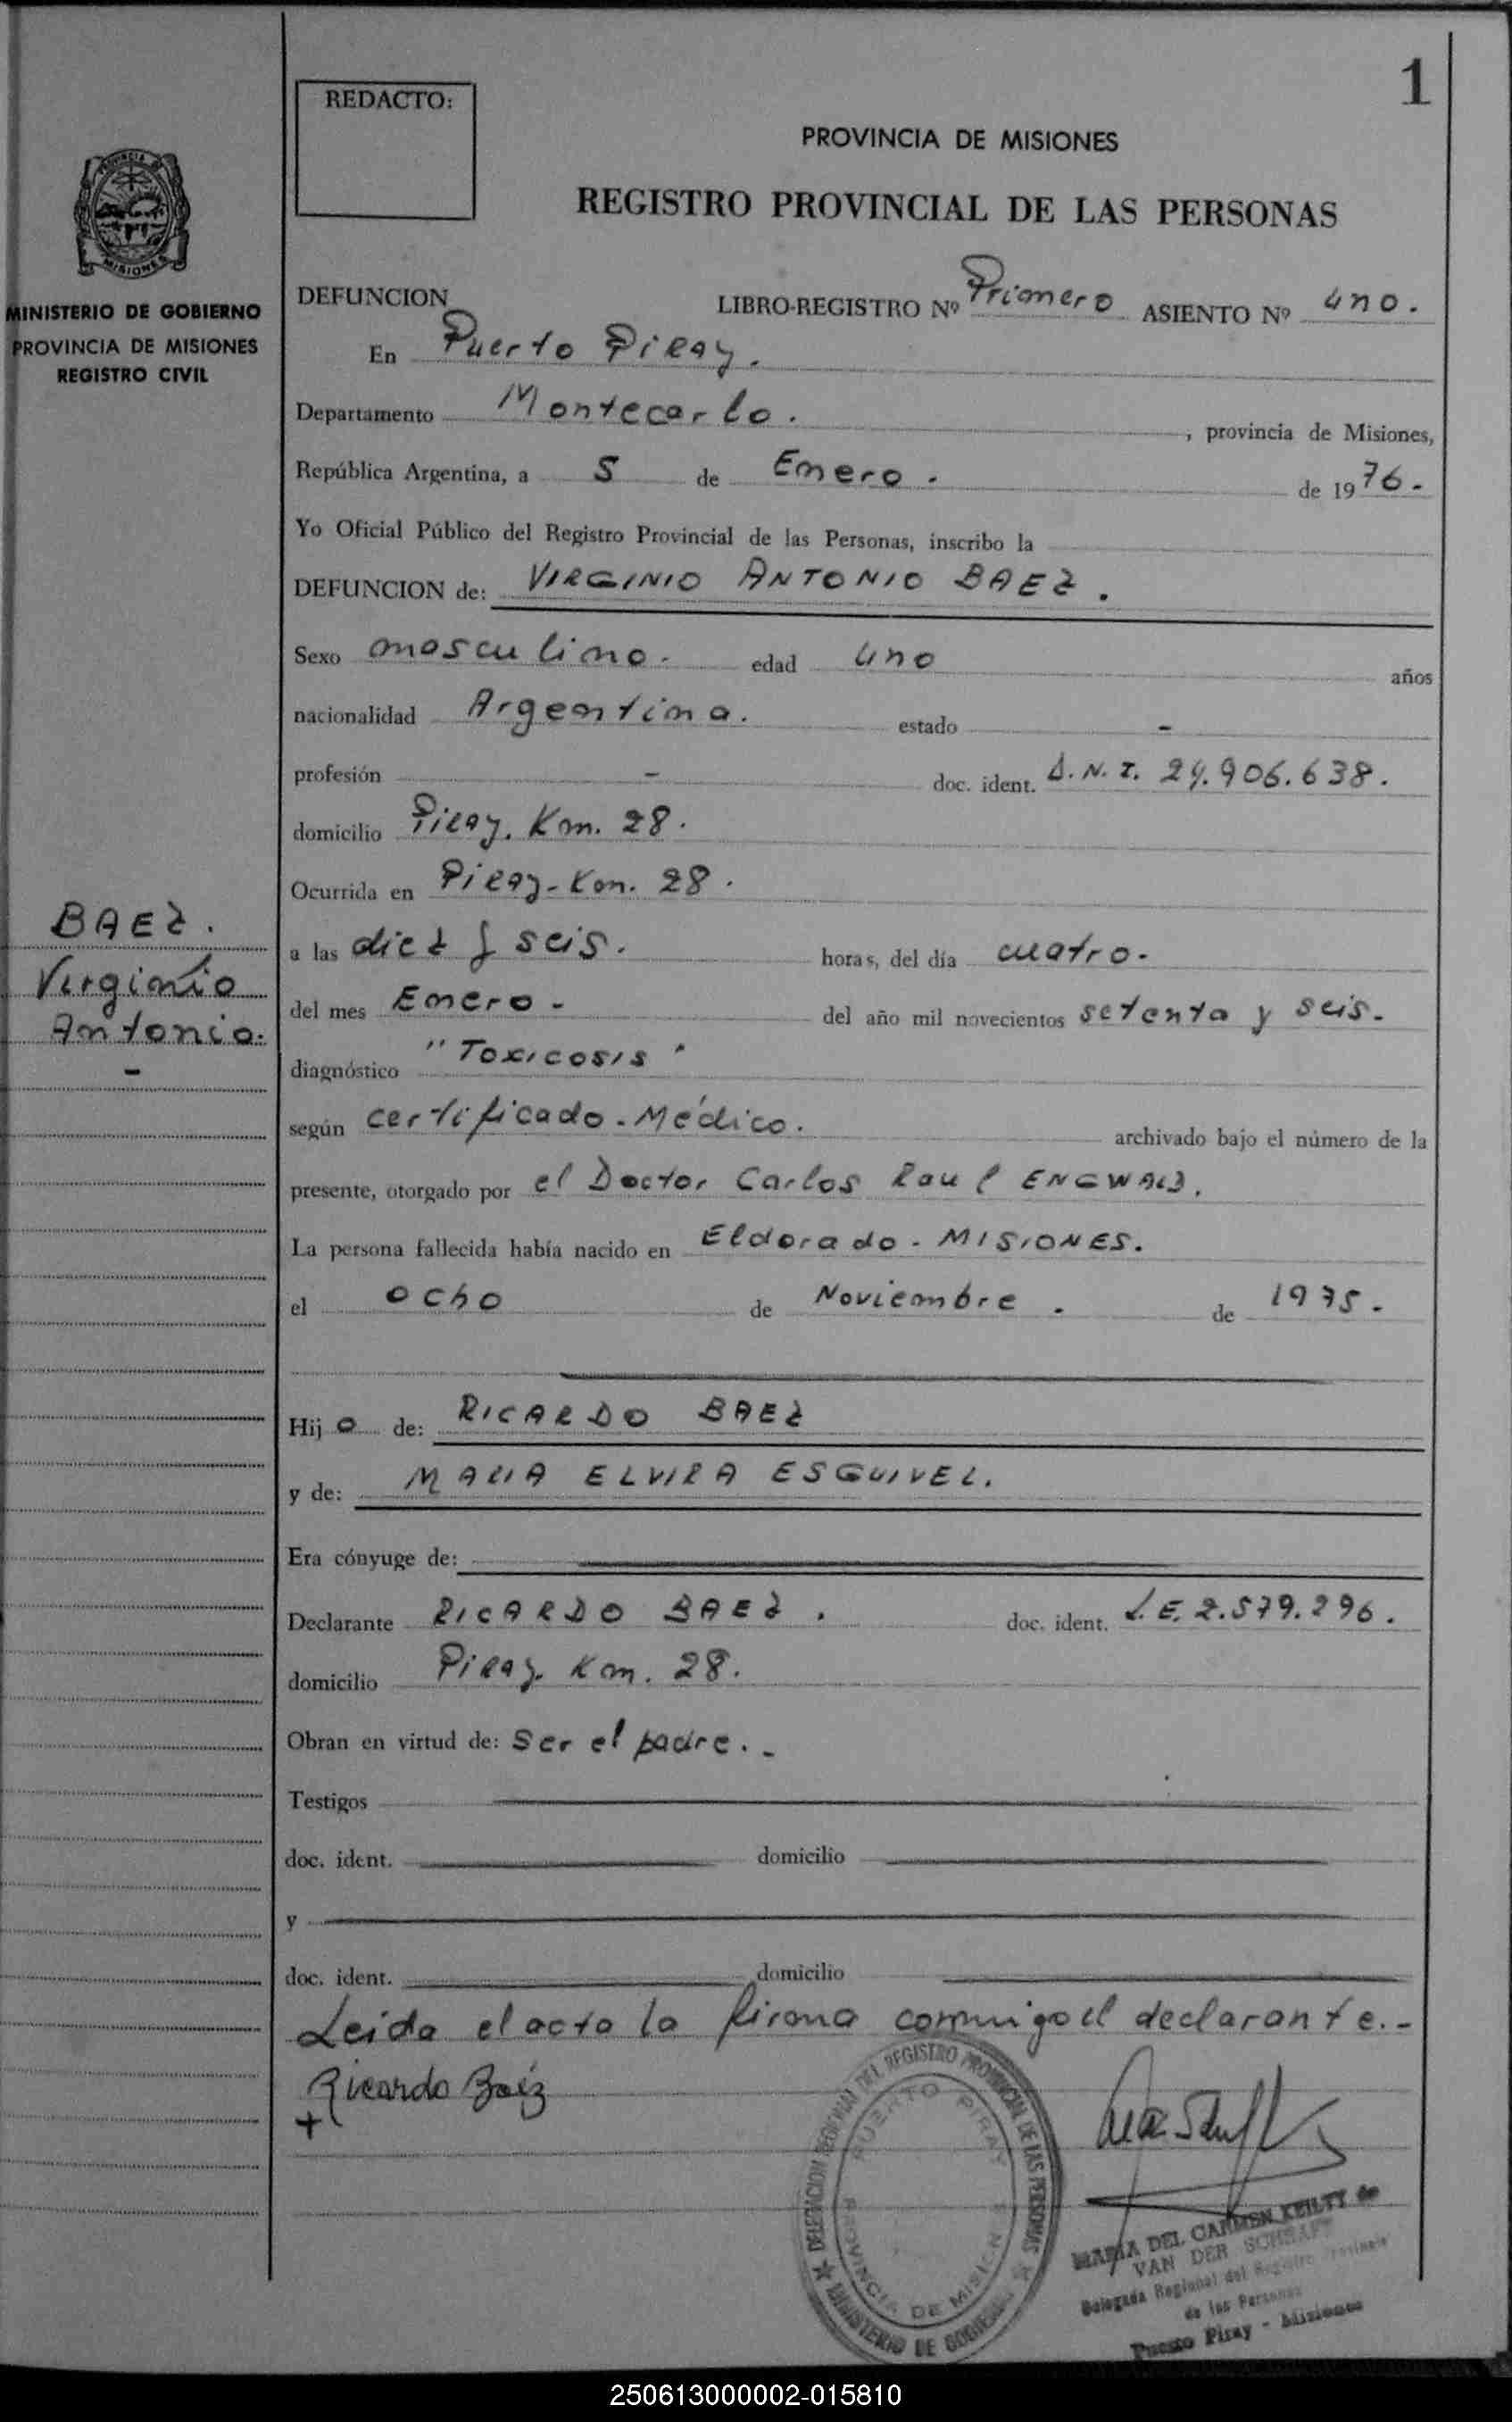 1
REDACTO:
PROVINCIA DE MISIONES
REGISTRO PROVINCIAL DE LAS PERSONAS
PROVINCIA DE
MISIONES
MINISTERIO DE GOBIERNO
PROVINCIA DE MISIONES
REGISTRO CIVIL
DEFUNCION LIBRO-REGISTRO Nº Primero ASIENTO Nº uno.
En Puerto Piray.
Departamento Montecarlo. , provincia de Misiones,
República Argentina, a 5 de Enero. de 1976.
Yo Oficial Público del Registro Provincial de las Personas, inscribo la
DEFUNCION de: VIRGINIO ANTONIO BAEZ.
Sexo masculino. edad uno años
nacionalidad Argentina. estado -
profesión - doc. ident. D.N.I. 24.906.638.
domicilio Piray. Km. 28.
Ocurrida en Piray-Km. 28.
a las diez y seis. horas, del día cuatro.
del mes Enero- del año mil novecientos setenta y seis.
diagnóstico "Toxicosis"
según certificado-Médico. archivado bajo el número de la
presente, otorgado por el Doctor Carlos Raul ENGWALD.
La persona fallecida había nacido en Eldorado-MISIONES.
el ocho de Noviembre. de 1975.
Hijo de: RICARDO BAEZ
y de: MARIA ELVIRA ESGUIVEL.
Era cónyuge de:
Declarante RICARDO BAEZ. doc. ident. L.E. 2.579.296.
domicilio Piray. Km. 28.
Obran en virtud de: Ser el padre.-
Testigos
doc. ident. domicilio
y
doc. ident. domicilio
Leida el acta la firma conmigo el declarante.-
Ricardo Baez
+
BAEZ.
Virginio
Antonio.
-
DELEGACION REGIONAL DEL REGISTRO PROVINCIAL DE LAS PERSONAS
MINISTERIO DE GOBIERNO
PUERTO PIRAY
PROVINCIA DE MISIONES
MARIA DEL CARMEN KEILTY de
VAN DER SCHRAFT
Delegada Regional del Registro Provincial
de las Personas
Puerto Piray - Misiones
250613000002-015810